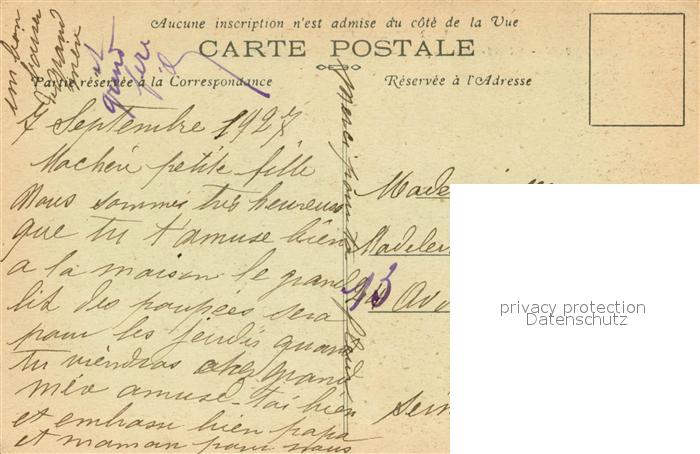 Aucune inscription n'est admise du côté de la Vue
CARTE POSTALE
Partie réservée à la Correspondance
Réservée à l'Adresse
7 Septembre 1927
Macheri petite fille
Nous sommes très heureux
que tu t'amuse bien
a la maison le grand
lit des poupées sera
pour les jeudis quand
tu viendras chez grand
mér amuse-toi bien
et embrasse bien papa
et maman pour nous
un bon
grand
et grand
père
Merci pour ta
Made
Madelei
93 Av
Sein
privacy protection
Datenschutz